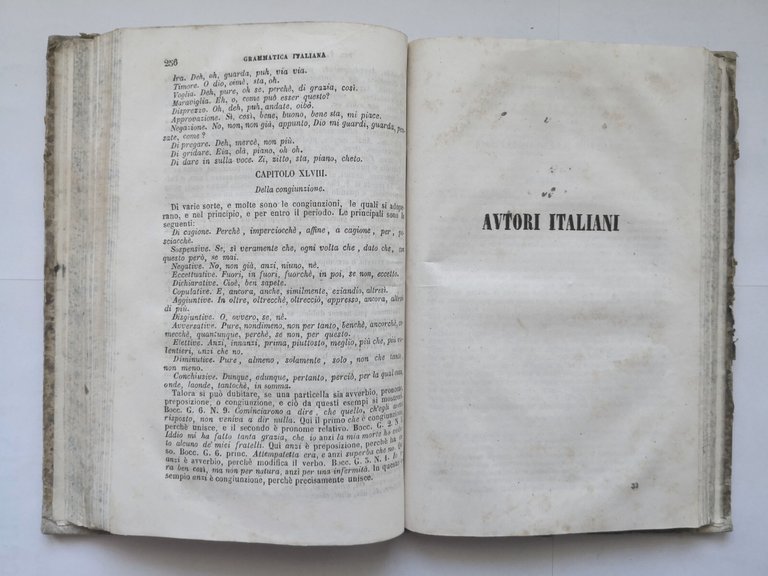 256
GRAMMATICA ITALIANA
Ira. Deh, oh, guarda, puh, via via.
Timore. O dio, oimè, sta, oh.
Voglia. Deh, pure, oh se, perchè, di grazia, così.
Maraviglia. Eh, o, come può esser questo?
Disprezzo. Oh, deh, puh, andate, oibò.
Approvazione. Sì, così, bene, buono, bene sta, mi piace.
Negazione. No, non, non già, appunto, Dio mi guardi, guarda, pensate, come?
Di pregare. Deh, mercè, non più.
Di gridare. Eia, olà, piano, oh oh.
Di dare in sulla voce. Zi, zitto, sta, piano, cheto.
CAPITOLO XLVIII.
Della congiunzione.
Di varie sorte, e molte sono le congiunzioni, le quali si adope-
rano, e nel principio, e per entro il periodo. Le principali sono le
seguenti:
Di cagione. Perchè, imperciocchè, affine, a cagione, per,
sciacchè.
Sospensive. Se, sì veramente che, ogni volta che, dato che, con
questo però, se mai.
Negative. No, non già, anzi, niuno, nè.
Eccettuative. Fuori, in fuori, fuorchè, in poi, se non, eccetto.
Dichiarative. Cioè, ben sapete.
Copulative. E, ancora, anche, similmente, eziandio, altresì.
Aggiuntive. In oltre, oltrecchè, oltrecciò, appresso, ancora,
di più.
Disgiuntive. O, ovvero, se, nè.
Avversative. Pure, nondimeno, non per tanto, benchè, ancorchè,
mecchè, quantunque, perchè, se non, per questo.
Elettive. Anzi, innanzi, prima, piuttosto, meglio, più che, più
lentieri, anzi che no.
Diminutive. Pure, almeno, solamente, solo, non che
non meno.
Conchiusive. Dunque, adunque, pertanto, perciò, per la qual
onde, laonde, tantochè, in somma.
Talora si può dubitare, se una particella sia avverbio, pronome,
preposizione, o congiunzione, e ciò da questi esempi si
Bocc. G. 6. N. 9. Cominciarono a dire, che quello, ch'egli
risposto, non veniva a dir nulla. Qui il primo che è congiunzione,
perchè unisce, e il secondo è pronome relativo. Bocc. G. 2.
Iddio mi ha fatto tanta grazia, che io anzi la mia morte ho
lo alcuno de' miei fratelli. Qui anzi è preposizione, perchè ha
so. Bocc. G. 6. princ. Attempatetta era, e anzi superba che
anzi è avverbio, perchè modifica il verbo. Bocc. G. 5. N. 1.
ra ben così, ma non per natura, anzi per una infermità. In questo
sempio anzi è congiunzione, perchè precisamente unisce.
AVTORI ITALIANI
37